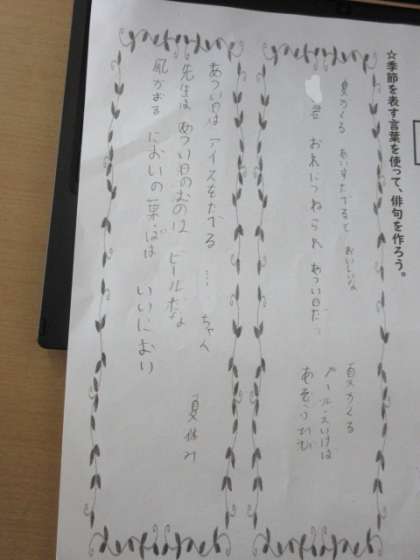 ☆季節を表す言葉を使って、俳句を作ろう。
夏がくる あいすたべると おいしいな
君 おれにつねられ あつい日だっ
夏がくる
プールえいけば
あそべむ
あつい日は アイスをたべる … ちゃん
先生は あつい日のむのは ビールだな
風かおる においの葉っぱは いいにおい
夏休み